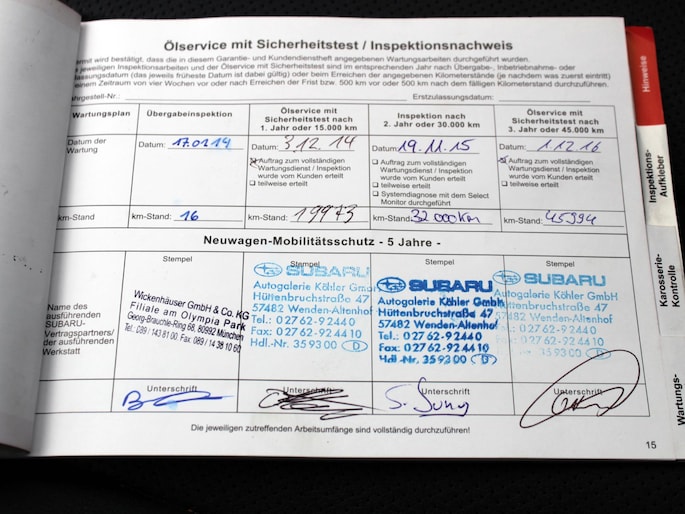 Ölservice mit Sicherheitstest / Inspektionsnachweis
ermit wird bestätigt, dass die in diesem Garantie- und Kundendienstheft angegebenen Wartungsarbeiten durchgeführt wurden.
e jeweiligen Inspektionsarbeiten und der Ölservice mit Sicherheitstest sind im entsprechenden Jahr nach Übergabe-, Inbetriebnahme- oder
lassungsdatum (das jeweils früheste Datum ist dabei gültig) oder beim Erreichen der angegebenen Kilometerstände (je nachdem was zuerst eintritt)
einem Zeitraum von vier Wochen vor oder nach Erreichen der Frist bzw. 500 km vor oder 500 km nach dem fälligen Kilometerstand durchzuführen.
ahrgestell-Nr.: Erstzulassungsdatum:
Wartungsplan
Übergabeinspektion
Ölservice mit
Sicherheitstest nach
1. Jahr oder 15.000 km
Inspektion nach
2. Jahr oder 30.000 km
Ölservice mit
Sicherheitstest nach
3. Jahr oder 45.000 km
Datum der
Wartung
Datum: 17.01.14
Datum: 3.12.14
Auftrag zum vollständigen
Wartungsdienst / Inspektion
wurde vom Kunden erteilt
teilweise erteilt
Datum: 19.11.15
Auftrag zum vollständigen
Wartungsdienst / Inspektion
wurde vom Kunden erteilt
teilweise erteilt
Systemdiagnose mit dem Select
Monitor durchgeführt
Datum: 1.12.16
Auftrag zum vollständigen
Wartungsdienst / Inspektion
wurde vom Kunden erteilt
teilweise erteilt
km-Stand
km-Stand: 16
km-Stand: 19973
km-Stand: 32000km
km-Stand: 45394
Neuwagen-Mobilitätsschutz - 5 Jahre -
Name des
ausführenden
SUBARU-
Vertragspartners/
der ausführenden
Werkstatt
Stempel
Wickenhäuser GmbH & Co. KG
Filiale am Olympia Park
Georg-Brauchle-Ring 68, 80992 München
Tel.: 089 / 143 81 00 Fax: 089 / 14 38 10 60
Stempel
SUBARU
Autogalerie Köhler Gm
Hüttenbruchstraße 47
57482 Wenden-Altenhof
Tel.: 0 27 62-9 24 40
Fax: 0 27 62-9 24 4
Hdl.-Nr. 35 93 00 D
Stempel
SUBARU
Autogalerie Köhler GmbH
Hüttenbruchstraße 47
57482 Wenden-Altenhof
Tel.: 0 27 62-9 24 40
Fax: 0 27 62-9 24 41
Hdl.-Nr. 35 93 00 D
Stempel
SUBARU
Autogalerie Köhler GmbH
Hüttenbruchstraße 47
57482 Wenden-Altenhof
Tel.: 0 27 62-9 24 40
Unterschrift
Unterschrift
Unterschrift
Unterschrift
Die jeweiligen zutreffenden Arbeitsumfänge sind vollständig durchzuführen!
15
Hinweise
Inspektions-
Aufkleber
Karosserie-
Kontrolle
Wartungs-